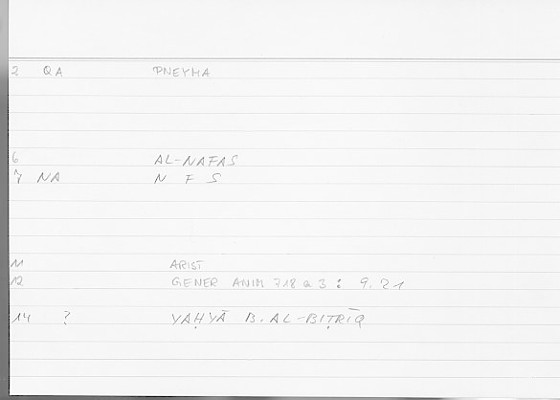 2 QA PNEYMA
6 AL-NAFAS
7 NA N F S
11 ARIST
12 GENER ANIM 718 a 3 : 9. 21
14 ? YAḤYĀ B. AL-BIṬRĪQ